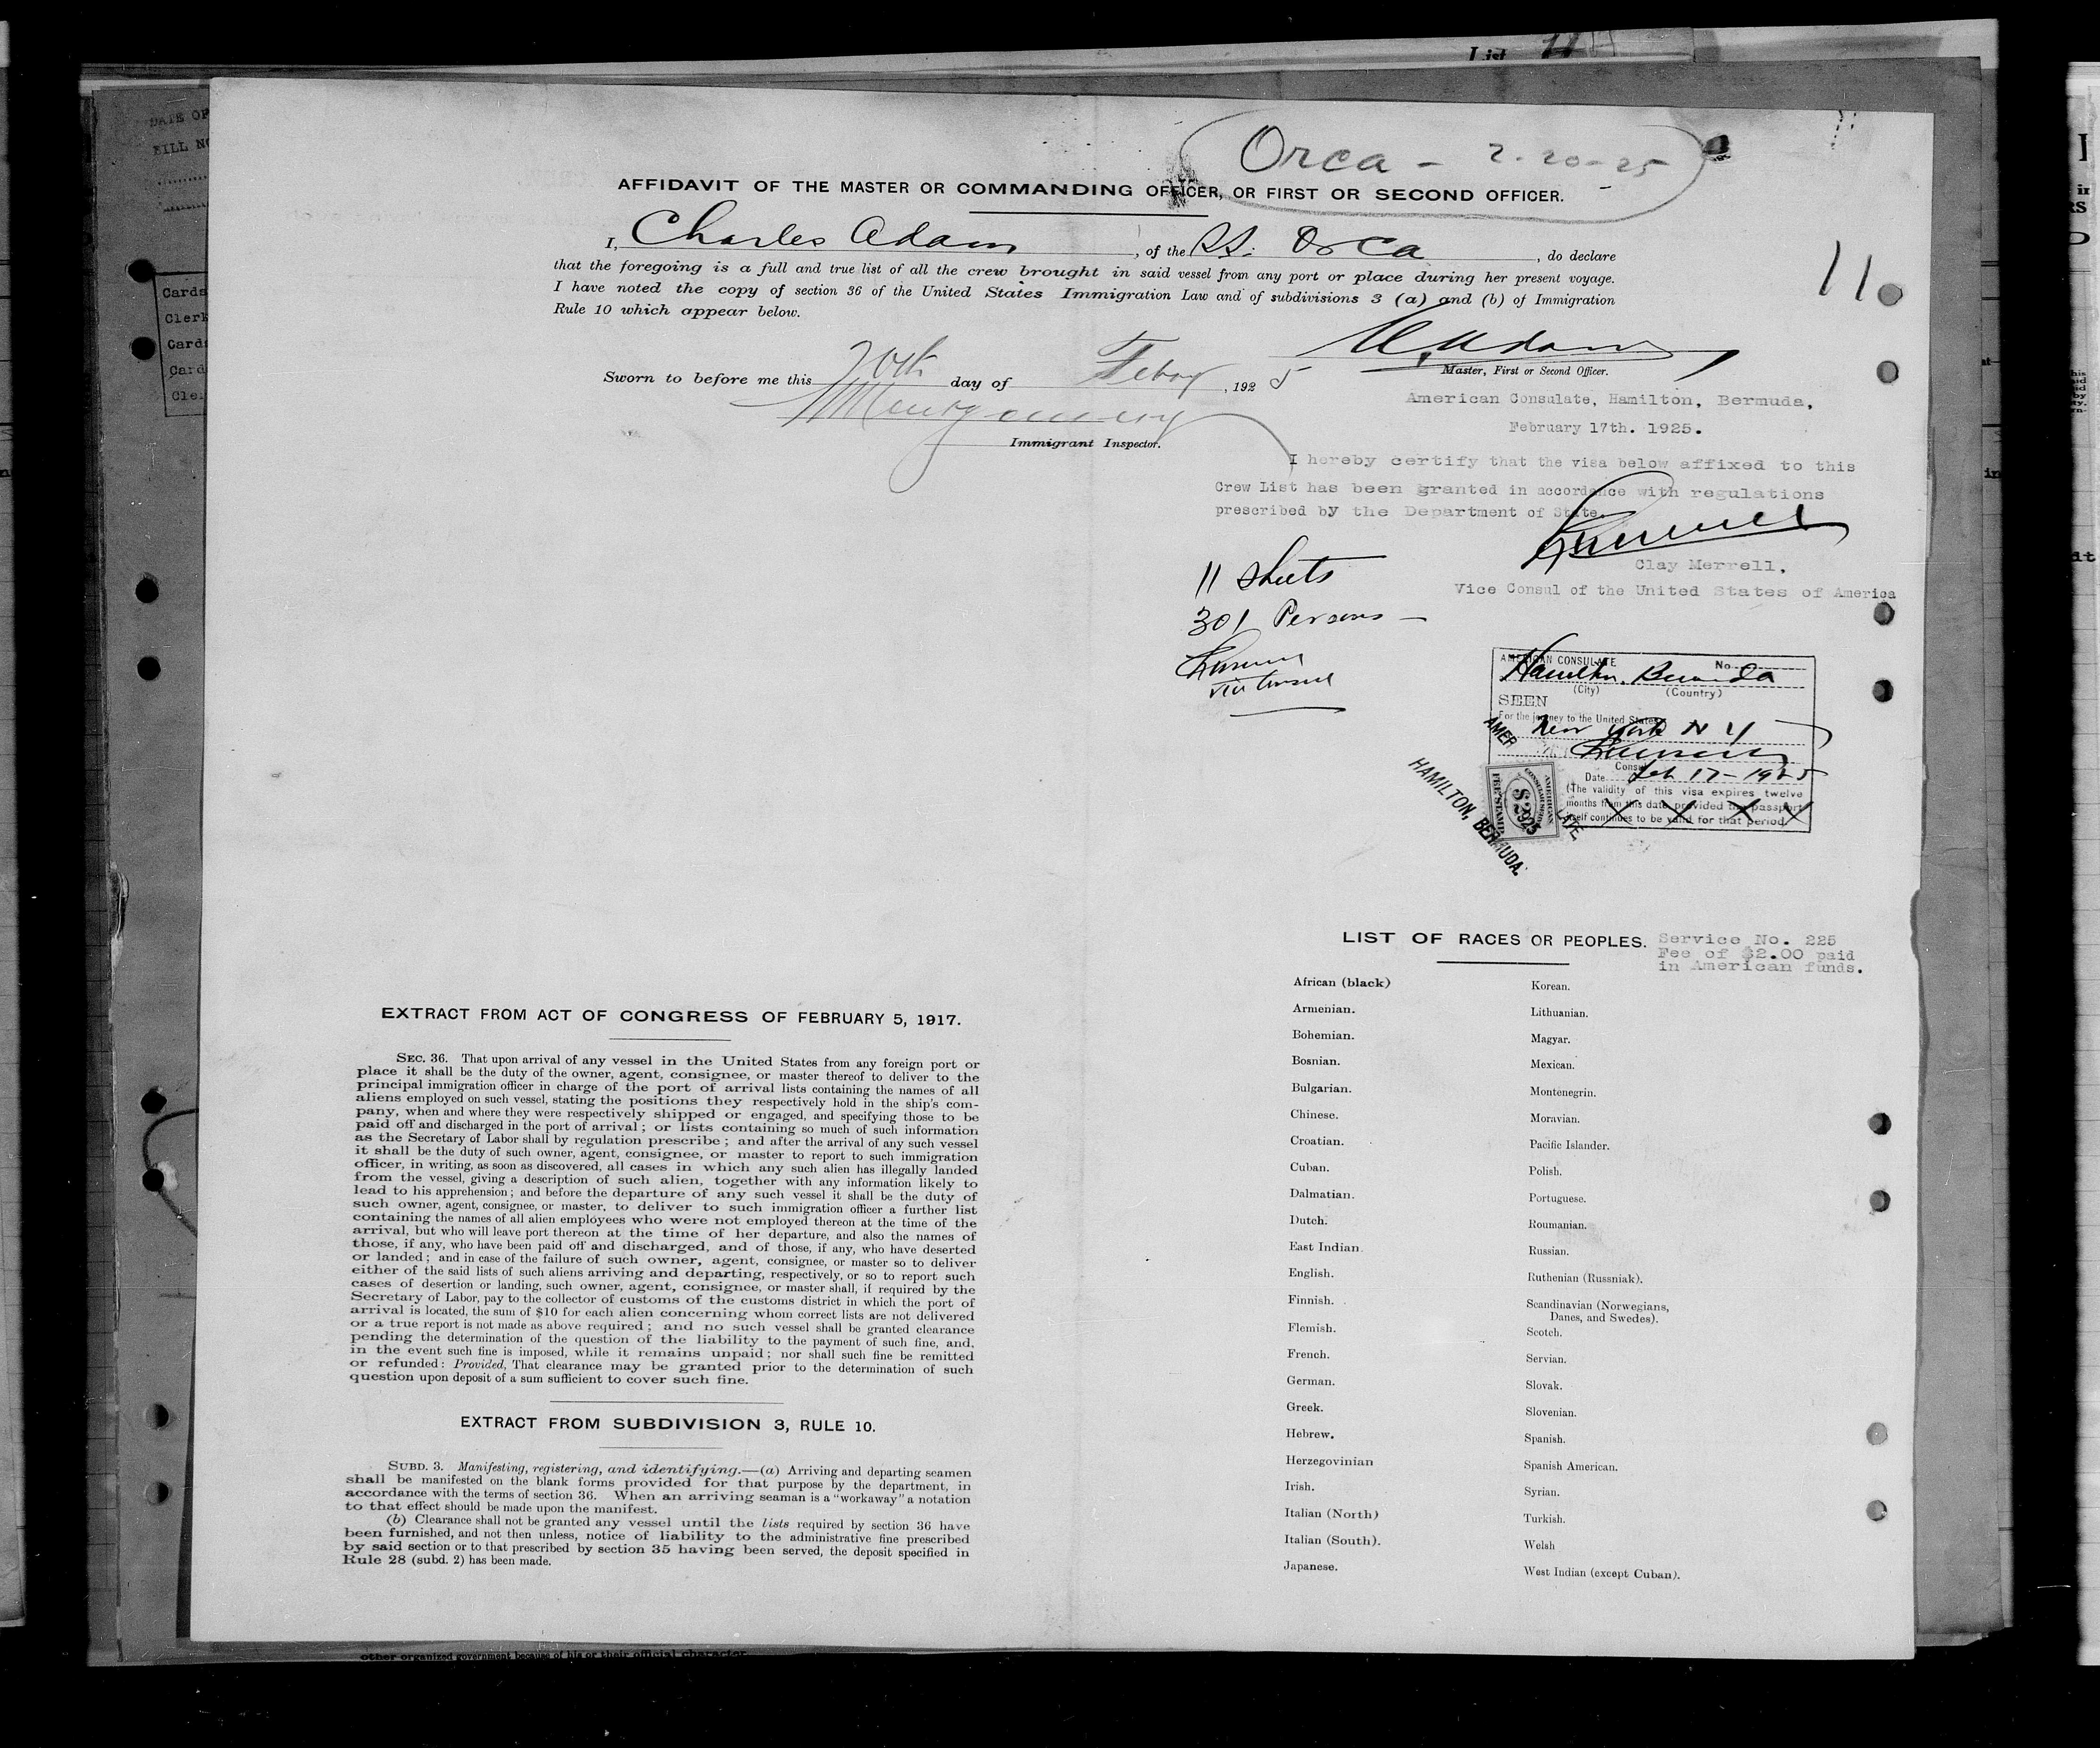 List 11
DATE OF
BILL NO
Cards
Clerk
Cards
Card
Cle
Orca - 2-20-25
AFFIDAVIT OF THE MASTER OR COMMANDING OFFICER, OR FIRST OR SECOND OFFICER.
I, Charles Adam, of the S.S. Orca, do declare
that the foregoing is a full and true list of all the crew brought in said vessel from any port or place during her present voyage.
I have noted the copy of section 36 of the United States Immigration Law and of subdivisions 3 (a) and (b) of Immigration
Rule 10 which appear below.
11
Sworn to before me this 20th day of Febry, 1925
Master, First or Second Officer.
Montgomery
Immigrant Inspector.
American Consulate, Hamilton, Bermuda,
February 17th. 1925.
I hereby certify that the visa below affixed to this
Crew List has been granted in accordance with regulations
prescribed by the Department of State.
Clay Merrell,
Vice Consul of the United States of America
11 sheets
301 Persons —
Vice Consul
AMERICAN CONSULATE No.
Hamilton, Bermuda
(City) (Country)
SEEN
For the journey to the United States
New York N Y
Consul
Date Feb 17 - 1925
(The validity of this visa expires twelve
months from this date provided the passport
itself continues to be valid for that period.
AMERICAN
CONSULAR SERVICE
$2
FEE STAMP
1925
HAMILTON, BERMUDA.
LIST OF RACES OR PEOPLES.
Service No. 225
Fee of $2.00 paid
in American funds.
African (black)
Armenian.
Bohemian.
Bosnian.
Bulgarian.
Chinese.
Croatian.
Cuban.
Dalmatian.
Dutch.
East Indian.
English.
Finnish.
Flemish.
French.
German.
Greek.
Hebrew.
Herzegovinian
Irish.
Italian (North)
Italian (South).
Japanese.
Korean.
Lithuanian.
Magyar.
Mexican.
Montenegrin.
Moravian.
Pacific Islander.
Polish.
Portuguese.
Roumanian.
Russian.
Ruthenian (Russniak).
Scandinavian (Norwegians,
Danes, and Swedes).
Scotch.
Servian.
Slovak.
Slovenian.
Spanish.
Spanish American.
Syrian.
Turkish.
Welsh
West Indian (except Cuban).
EXTRACT FROM ACT OF CONGRESS OF FEBRUARY 5, 1917.
SEC. 36. That upon arrival of any vessel in the United States from any foreign port or
place it shall be the duty of the owner, agent, consignee, or master thereof to deliver to the
principal immigration officer in charge of the port of arrival lists containing the names of all
aliens employed on such vessel, stating the positions they respectively hold in the ship's com-
pany, when and where they were respectively shipped or engaged, and specifying those to be
paid off and discharged in the port of arrival; or lists containing so much of such information
as the Secretary of Labor shall by regulation prescribe; and after the arrival of any such vessel
it shall be the duty of such owner, agent, consignee, or master to report to such immigration
officer, in writing, as soon as discovered, all cases in which any such alien has illegally landed
from the vessel, giving a description of such alien, together with any information likely to
lead to his apprehension; and before the departure of any such vessel it shall be the duty of
such owner, agent, consignee, or master, to deliver to such immigration officer a further list
containing the names of all alien employees who were not employed thereon at the time of the
arrival, but who will leave port thereon at the time of her departure, and also the names of
those, if any, who have been paid off and discharged, and of those, if any, who have deserted
or landed; and in case of the failure of such owner, agent, consignee, or master so to deliver
either of the said lists of such aliens arriving and departing, respectively, or so to report such
cases of desertion or landing, such owner, agent, consignee, or master shall, if required by the
Secretary of Labor, pay to the collector of customs of the customs district in which the port of
arrival is located, the sum of $10 for each alien concerning whom correct lists are not delivered
or a true report is not made as above required; and no such vessel shall be granted clearance
pending the determination of the question of the liability to the payment of such fine, and,
in the event such fine is imposed, while it remains unpaid; nor shall such fine be remitted
or refunded: Provided, That clearance may be granted prior to the determination of such
question upon deposit of a sum sufficient to cover such fine.
EXTRACT FROM SUBDIVISION 3, RULE 10.
SUBD. 3. Manifesting, registering, and identifying.—(a) Arriving and departing seamen
shall be manifested on the blank forms provided for that purpose by the department, in
accordance with the terms of section 36. When an arriving seaman is a "workaway" a notation
to that effect should be made upon the manifest.
(b) Clearance shall not be granted any vessel until the lists required by section 36 have
been furnished, and not then unless, notice of liability to the administrative fine prescribed
by said section or to that prescribed by section 35 having been served, the deposit specified in
Rule 28 (subd. 2) has been made.
other organized government because of his or their official character